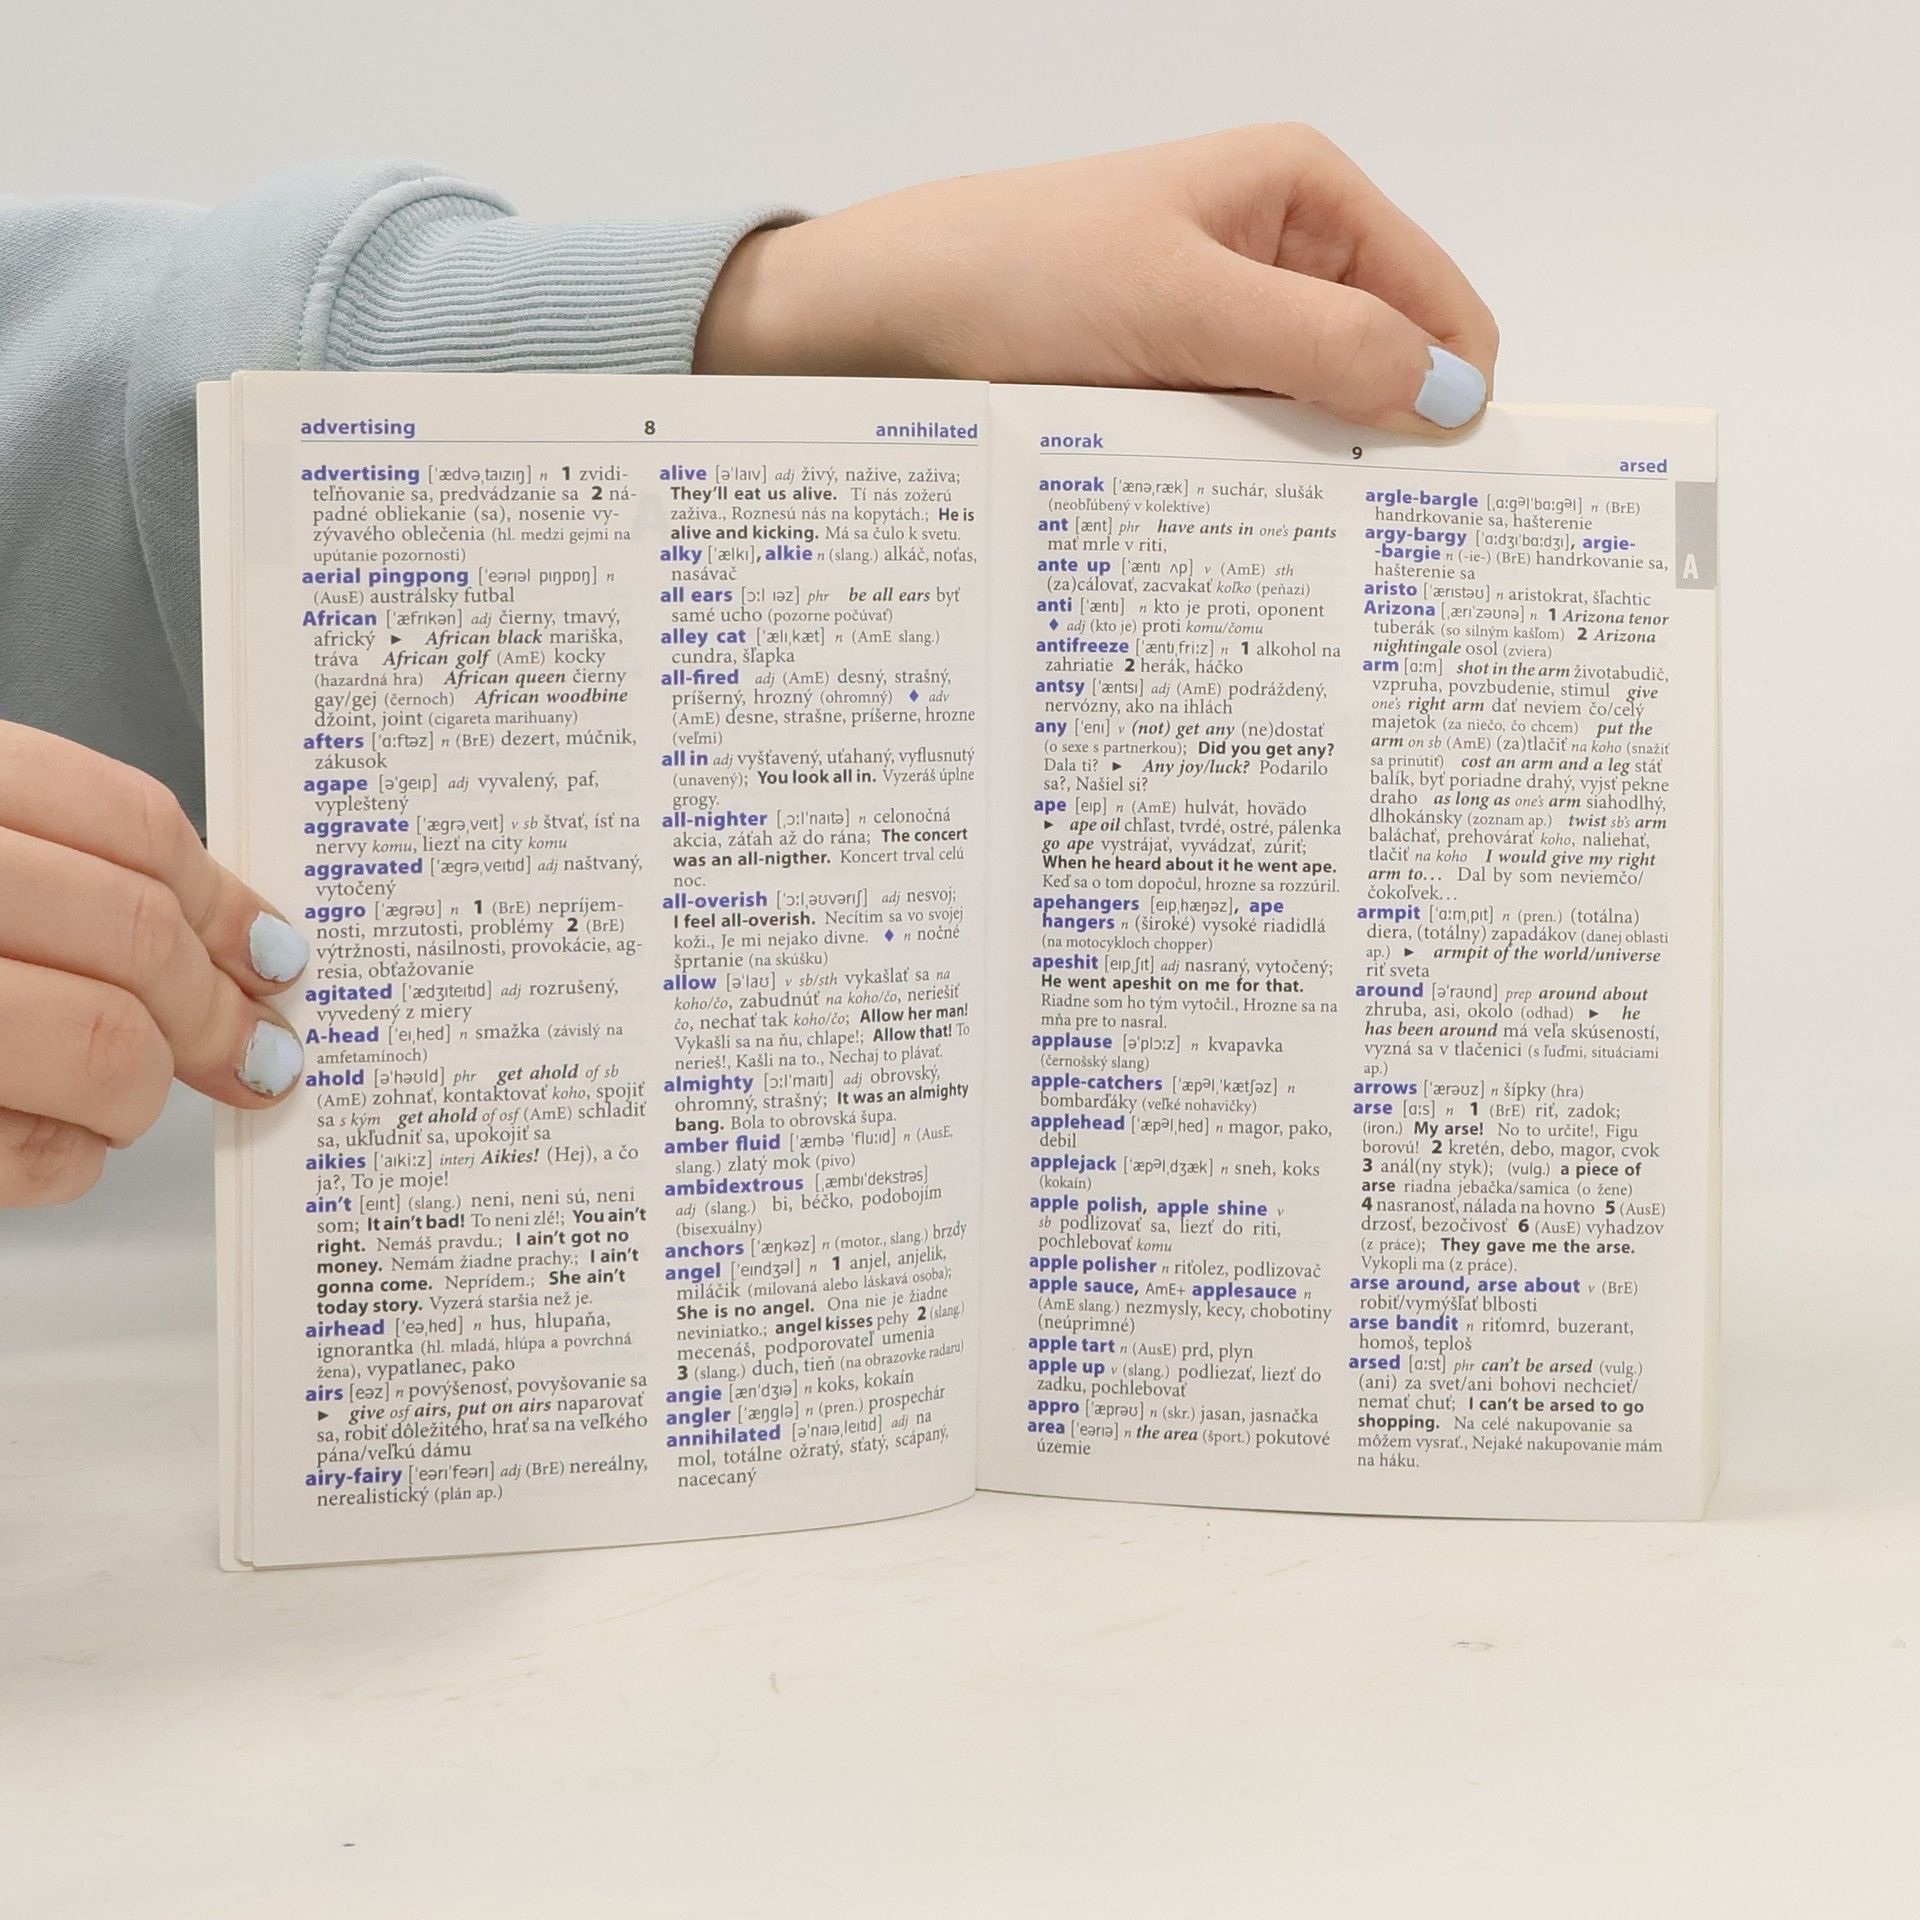 advertising 8 annihilated
advertising [ˈædvəˌtaızıŋ] n 1 zvidi-
teľňovanie sa, predvádzanie sa 2 ná-
padné obliekanie (sa), nosenie vy-
zývavého oblečenia (hl. medzi gejmi na
upútanie pozornosti)
aerial pingpong [ˈeərıəl pıŋpɒŋ] n
(AusE) austrálsky futbal
African [ˈæfrıkən] adj čierny, tmavý,
africký ► African black mariška,
tráva African golf (AmE) kocky
(hazardná hra) African queen čierny
gay/gej (černoch) African woodbine
džoint, joint (cigareta marihuany)
afters [ˈɑːftəz] n (BrE) dezert, múčnik,
zákusok
agape [əˈgeıp] adj vyvalený, paf,
vypleštený
aggravate [ˈægrəˌveıt] v sb štvať, ísť na
nervy komu, liezť na city komu
aggravated [ˈægrəˌveıtıd] adj naštvaný,
vytočený
aggro [ˈægrəʊ] n 1 (BrE) nepríjem-
nosti, mrzutosti, problémy 2 (BrE)
výtržnosti, násilnosti, provokácie, ag-
resia, obťažovanie
agitated [ˈædʒıteıtıd] adj rozrušený,
vyvedený z miery
A-head [ˈeıˌhed] n smažka (závislý na
amfetamínoch)
ahold [əˈhəʊld] phr get ahold of sb
(AmE) zohnať, kontaktovať koho, spojiť
sa s kým get ahold of osf (AmE) schladiť
sa, ukľudniť sa, upokojiť sa
aikies [ˈaıkiːz] interj Aikies! (Hej), a čo
ja?, To je moje!
ain't [eınt] (slang.) neni, neni sú, neni
som; It ain't bad! To neni zlé!; You ain't
right. Nemáš pravdu.; I ain't got no
money. Nemám žiadne prachy.; I ain't
gonna come. Neprídem.; She ain't
today story. Vyzerá staršia než je.
airhead [ˈeəˌhed] n hus, hlupaňa,
ignorantka (hl. mladá, hlúpa a povrchná
žena), vypatlanec, pako
airs [eəz] n povýšenosť, povyšovanie sa
► give osf airs, put on airs naparovať
sa, robiť dôležitého, hrať sa na veľkého
pána/veľkú dámu
airy-fairy [ˈeərıˈfeərı] adj (BrE) nereálny,
nerealistický (plán ap.)
alive [əˈlaıv] adj živý, nažive, zaživa;
They'll eat us alive. Tí nás zožerú
zaživa., Roznesú nás na kopytách.; He is
alive and kicking. Má sa čulo k svetu.
alky [ˈælkı], alkie n (slang.) alkáč, noťas,
nasávač
all ears [ɔːl ıəz] phr be all ears byť
samé ucho (pozorne počúvať)
alley cat [ˈælıˌkæt] n (AmE slang.)
cundra, šľapka
all-fired adj (AmE) desný, strašný,
príšerný, hrozný (ohromný) ♦ adv
(AmE) desne, strašne, príšerne, hrozne
(veľmi)
all in adj vyšťavený, uťahaný, vyflusnutý
(unavený); You look all in. Vyzeráš úplne
grogy.
all-nighter [ˌɔːlˈnaıtə] n celonočná
akcia, záťah až do rána; The concert
was an all-nigther. Koncert trval celú
noc.
all-overish [ˈɔːlˌəʊvərıʃ] adj nesvoj;
I feel all-overish. Necítim sa vo svojej
koži., Je mi nejako divne. ♦ n nočné
šprtanie (na skúšku)
allow [əˈlaʊ] v sb/sth vykašlať sa na
koho/čo, zabudnúť na koho/čo, neriešiť
čo, nechať tak koho/čo; Allow her man!
Vykašli sa na ňu, chlape!; Allow that! To
nerieš!, Kašli na to., Nechaj to plávať.
almighty [ɔːlˈmaıtı] adj obrovský,
ohromný, strašný; It was an almighty
bang. Bola to obrovská šupa.
amber fluid [ˈæmbə ˈfluːıd] n (AusE,
slang.) zlatý mok (pivo)
ambidextrous [ˌæmbıˈdekstrəs]
adj (slang.) bi, béčko, podobojím
(bisexuálny)
anchors [ˈæŋkəz] n (motor., slang.) brzdy
angel [ˈeındʒəl] n 1 anjel, anjelik,
miláčik (milovaná alebo láskavá osoba);
She is no angel. Ona nie je žiadne
neviniatko.; angel kisses pehy 2 (slang.)
mecenáš, podporovateľ umenia
3 (slang.) duch, tieň (na obrazovke radaru)
angie [ænˈdʒıə] n koks, kokaín
angler [ˈæŋglə] n (pren.) prospechár
annihilated [əˈnaıəˌleıtıd] adj na
mol, totálne ožratý, sťatý, scápaný,
nacecaný
anorak 9 arsed
anorak [ˈænəˌræk] n suchár, slušák
(neobľúbený v kolektíve)
ant [ænt] phr have ants in one's pants
mať mrle v riti,
ante up [ˈæntı ʌp] v (AmE) sth
(za)cálovať, zacvakať koľko (peňazí)
anti [ˈæntı] n kto je proti, oponent
♦ adj (kto je) proti komu/čomu
antifreeze [ˈæntıˌfriːz] n 1 alkohol na
zahriatie 2 herák, háčko
antsy [ˈæntsı] adj (AmE) podráždený,
nervózny, ako na ihlách
any [ˈenı] v (not) get any (ne)dostať
(o sexe s partnerkou); Did you get any?
Dala ti? ► Any joy/luck? Podarilo
sa?, Našiel si?
ape [eıp] n (AmE) hulvát, hovädo
► ape oil chľast, tvrdé, ostré, pálenka
go ape vystrájať, vyvádzať, zúriť;
When he heard about it he went ape.
Keď sa o tom dopočul, hrozne sa rozzúril.
apehangers [eıpˌhæŋəz], ape
hangers n (široké) vysoké riadidlá
(na motocykloch chopper)
apeshit [eıpˌʃıt] adj nasraný, vytočený;
He went apeshit on me for that.
Riadne som ho tým vytočil., Hrozne sa na
mňa pre to nasral.
applause [əˈplɔːz] n kvapavka
(černošský slang)
apple-catchers [ˈæpəlˌkætʃəz] n
bombarďáky (veľké nohavičky)
applehead [ˈæpəlˌhed] n magor, pako,
debil
applejack [ˈæpəlˌdʒæk] n sneh, koks
(kokaín)
apple polish, apple shine v
sb podlizovať sa, liezť do riti,
pochlebovať komu
apple polisher n riťolez, podlizovač
apple sauce, AmE+ applesauce n
(AmE slang.) nezmysly, kecy, chobotiny
(neúprimné)
apple tart n (AusE) prd, plyn
apple up v (slang.) podliezať, liezť do
zadku, pochlebovať
appro [ˈæprəʊ] n (skr.) jasan, jasnačka
area [ˈeərıə] n the area (šport.) pokutové
územie
argle-bargle [ˌɑːgəlˈbɑːgəl] n (BrE)
handrkovanie sa, hašterenie
argy-bargy [ˈɑːdʒıˈbɑːdʒı], argie-
-bargie n (-ie-) (BrE) handrkovanie sa,
hašterenie sa
aristo [ˈærıstəʊ] n aristokrat, šľachtic
Arizona [ˌærıˈzəʊnə] n 1 Arizona tenor
tuberák (so silným kašľom) 2 Arizona
nightingale osol (zviera)
arm [ɑːm] shot in the arm životabudič,
vzpruha, povzbudenie, stimul give
one's right arm dať neviem čo/celý
majetok (za niečo, čo chcem) put the
arm on sb (AmE) (za)tlačiť na koho (snažiť
sa prinútiť) cost an arm and a leg stáť
balík, byť poriadne drahý, vyjsť pekne
draho as long as one's arm siahodlhý,
dlhokánsky (zoznam ap.) twist sb's arm
baláchať, prehovárať koho, naliehať,
tlačiť na koho I would give my right
arm to… Dal by som neviemčo/
čokoľvek…
armpit [ˈɑːmˌpıt] n (pren.) (totálna)
diera, (totálny) zapadákov (danej oblasti
ap.) ► armpit of the world/universe
riť sveta
around [əˈraʊnd] prep around about
zhruba, asi, okolo (odhad) ► he
has been around má veľa skúseností,
vyzná sa v tlačenici (s ľuďmi, situáciami
ap.)
arrows [ˈærəʊz] n šípky (hra)
arse [ɑːs] n 1 (BrE) riť, zadok;
(iron.) My arse! No to určite!, Figu
borovú! 2 kretén, debo, magor, cvok
3 anál(ny styk); (vulg.) a piece of
arse riadna jebačka/samica (o žene)
4 nasranosť, nálada na hovno 5 (AusE)
drzosť, bezočivosť 6 (AusE) vyhadzov
(z práce); They gave me the arse.
Vykopli ma (z práce).
arse around, arse about v (BrE)
robiť/vymýšľať blbosti
arse bandit n riťomrd, buzerant,
homoš, teploš
arsed [ɑːst] phr can't be arsed (vulg.)
(ani) za svet/ani bohovi nechcieť/
nemať chuť; I can't be arsed to go
shopping. Na celé nakupovanie sa
môžem vysrať., Nejaké nakupovanie mám
na háku.
A